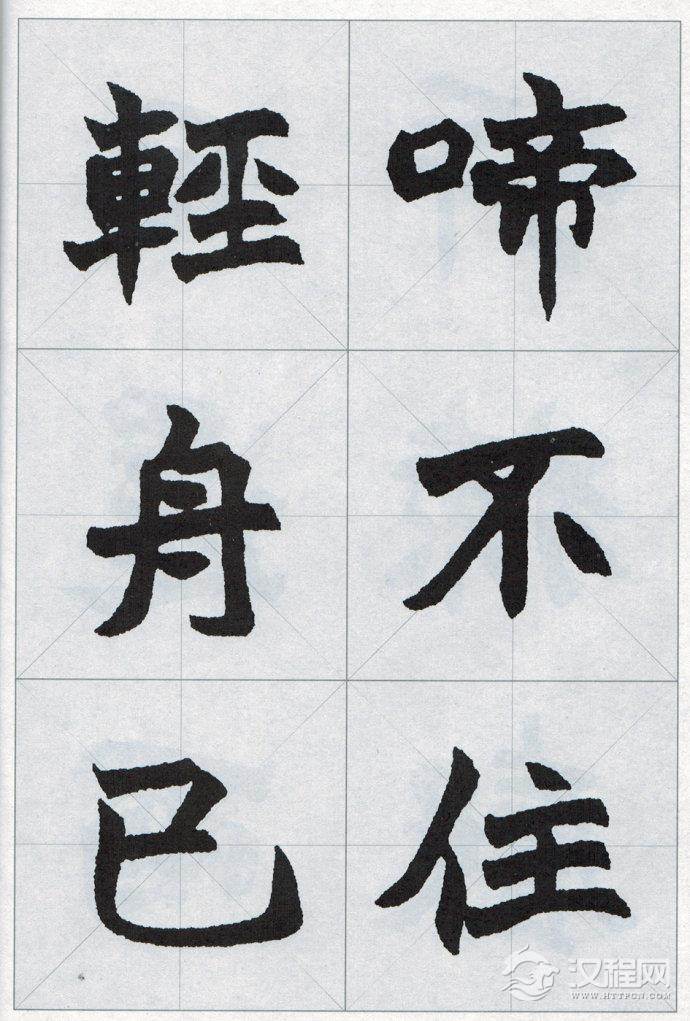 啼不住
輕舟已
汉程网
WWW.HTTPCN.COM